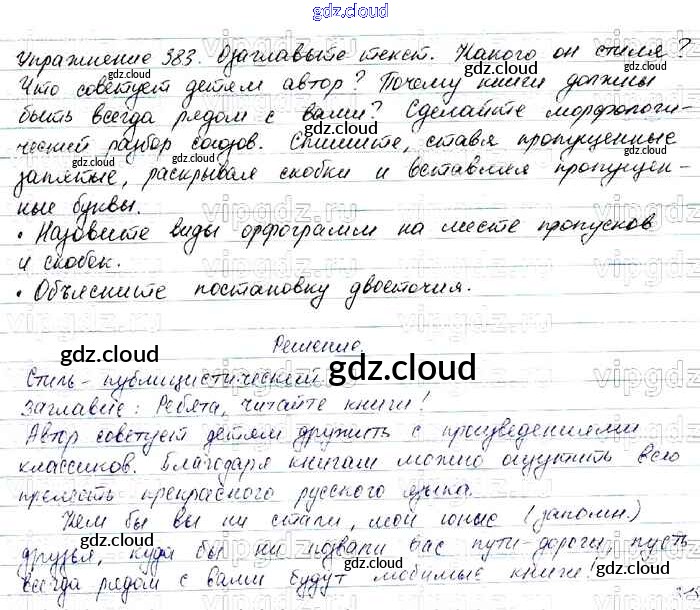 gdz.cloud
Упражнение 383. Озаглавьте текст. Какого он стиля?
Что советует детям автор? Почему книги должны
быть всегда рядом с вами? Сделайте морфологи-
ческий разбор союзов. Спишите, ставя пропущенные
запятые, раскрывая скобки и вставляя пропущен-
ные буквы.
• Назовите виды орфограмм на месте пропусков
и скобок.
• Объясните постановку двоеточия.
Решение.
Стиль - публицистический.
Заглавие: Ребята, читайте книги!
Автор советует детям дружить с произведениями
классиков. Благодаря книгам можно ощутить всю
прелесть прекрасного русского языка.
Кем бы вы ни стали, мои юные (запомн.)
друзья, куда бы ни позвали вас пути-дороги, пусть
всегда рядом с вами будут любимые книги!